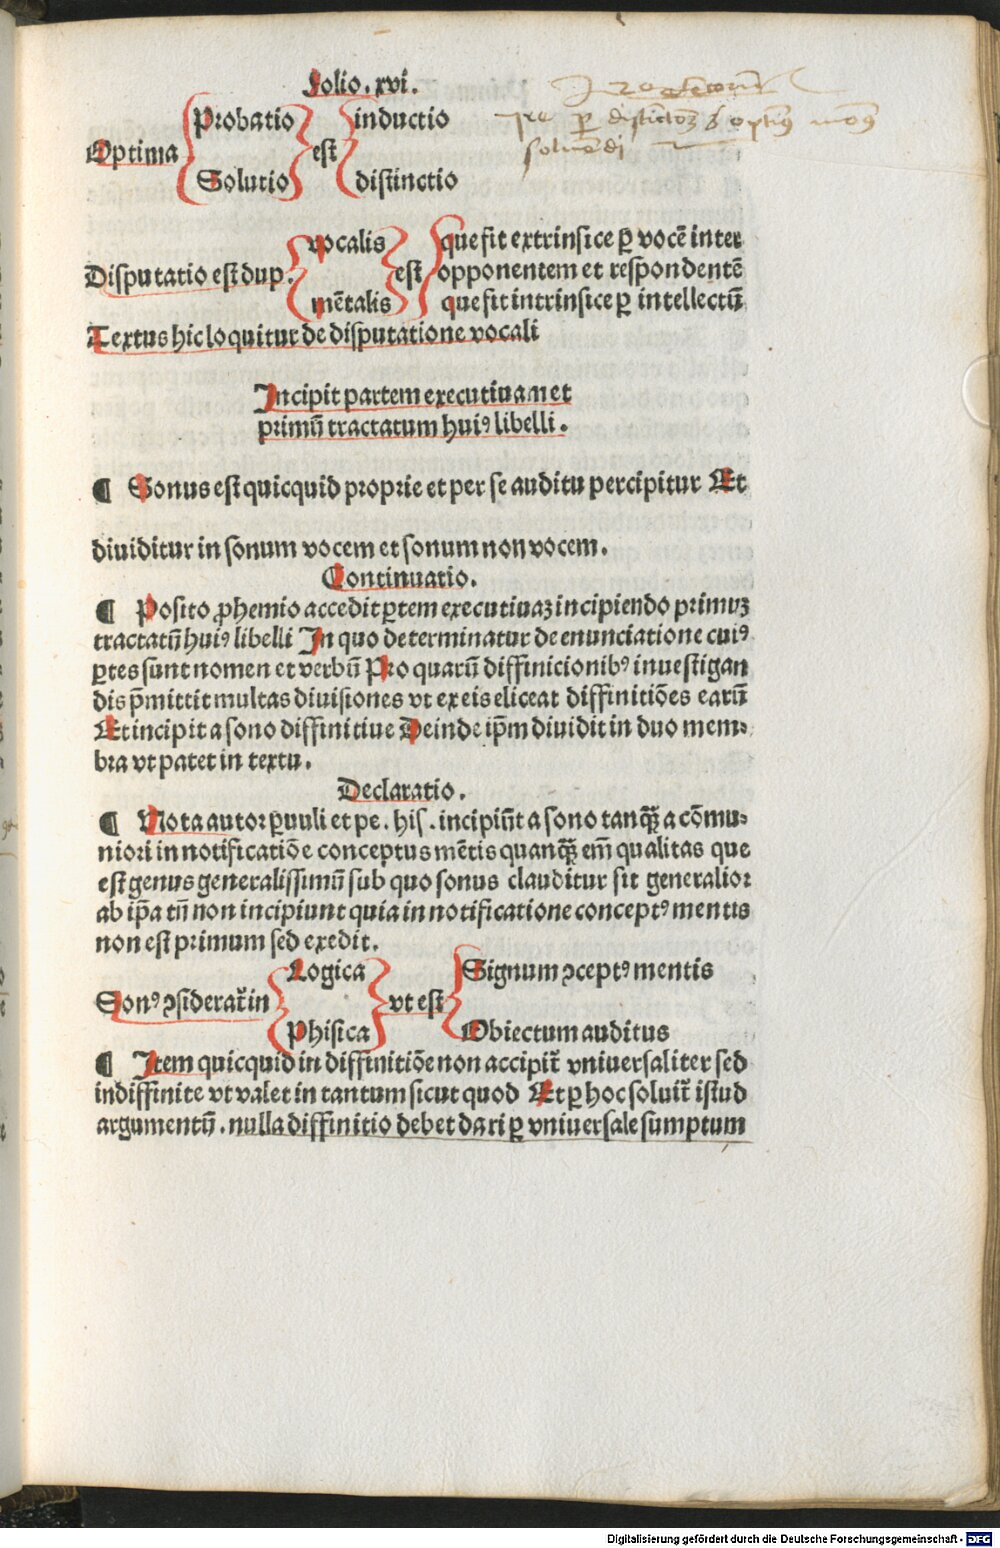 Folio. xvi.
Optima
Probatio
Solutio
est
inductio
distinctio
per distinctōꝫ optimꝰ modꝰ
solvendi
Disputatio est dup.
vocalis
mētalis
est
que fit extrinsice ꝑ vocē inter
opponentem et respondentē
que fit intrinsice ꝑ intellectū
Textus hic loquitur de disputatione vocali
Incipit partem executiuam et
primū tractatum huiꝰ libelli.
¶ Sonus est quicquid proprie et per se auditu percipitur Et
diuiditur in sonum vocem et sonum non vocem.
Continuatio.
¶ Posito ꝓhemio accedit ꝑtem executiuaꝫ incipiendo primuꝫ
tractatū huiꝰ libelli In quo determinatur de enunciatione cuiꝰ
ꝑtes sunt nomen et verbū Pro quarū diffinicionibꝰ inuestigan
dis p̄mittit multas diuisiones vt ex eis eliceat diffinitiōes earū
Et incipit a sono diffinitiue Deinde ip̄m diuidit in duo mem⸗
bra vt patet in textu.
Declaratio.
¶ Nota autor ꝑuuli et pe. his. incipiūt a sono tanqꝫ̄ a cōmu⸗
niori in notificatiōe conceptus mētis quanqꝫ̄ em̄ qualitas que
est genus generalissimū sub quo sonus clauditur sit generalior
ab ip̄a tn̄ non incipiunt quia in notificatione conceptꝰ mentis
non est primum sed exedit.
Sonꝰ ↄsiderat̄ in
Logica
Phisica
vt est
Signum ↄceptꝰ mentis
Obiectum auditus
¶ Item quicquid in diffinitiōe non accipit̄ vniuersaliter sed
indiffinite vt valet in tantum sicut quod Et ꝑ hoc soluit̄ istud
argumentū. nulla diffinitio debet dari ꝑ vniuersale sumptum
Digitalisierung gefördert durch die Deutsche Forschungsgemeinschaft - DFG